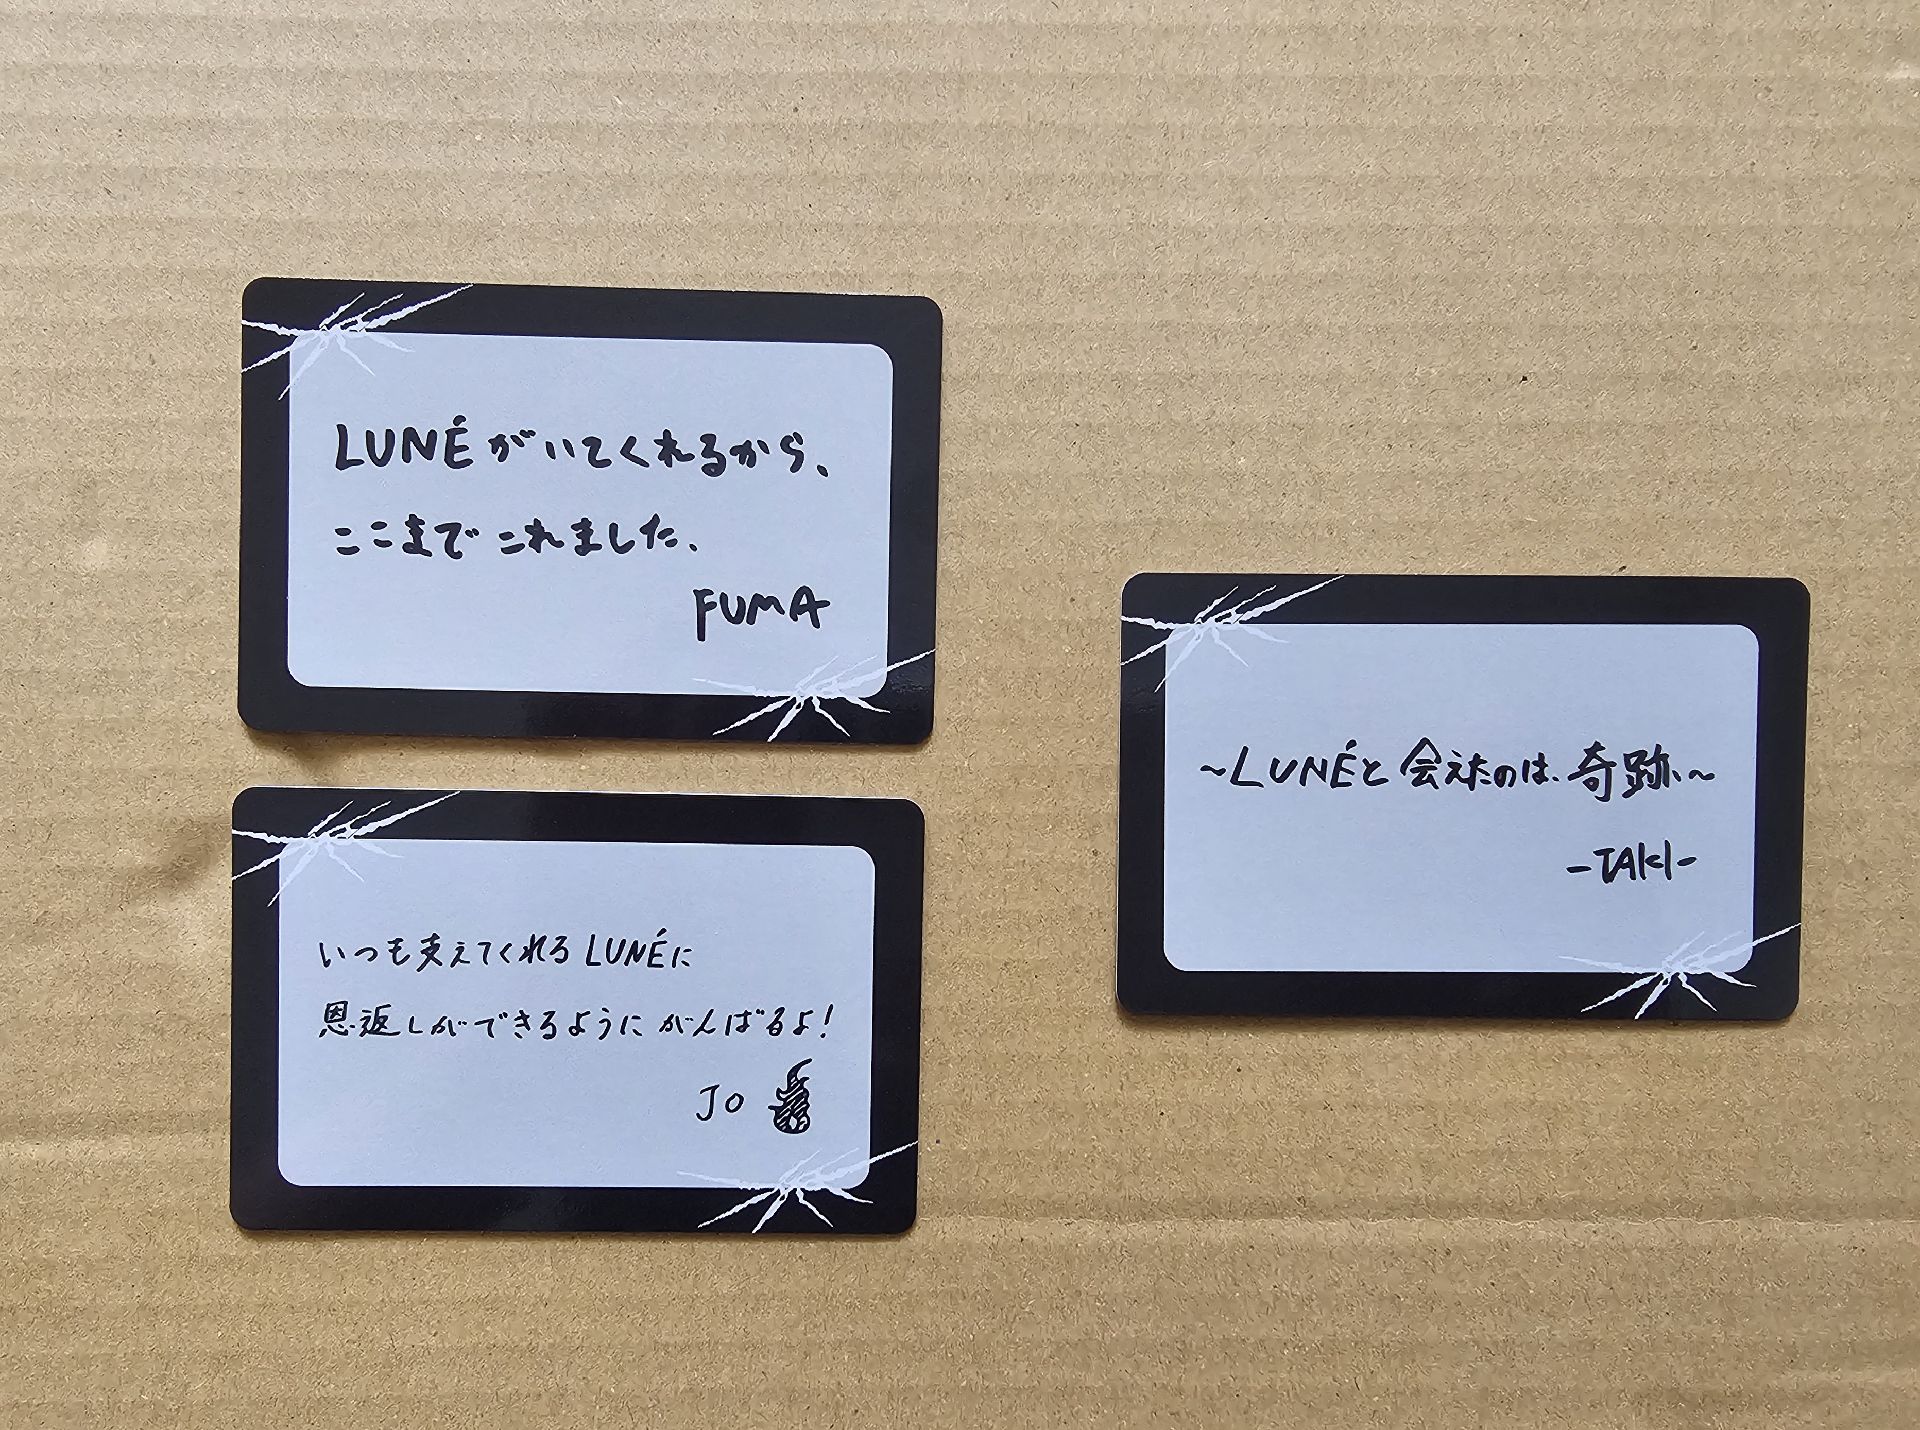 LUNÉがいてくれるから、
ここまでこれました、
FUMA
いつも支えてくれるLUNÉに
恩返しができるようにがんばるよ！
JO
～LUNÉと会えたのは、奇跡、～
-TAKI-